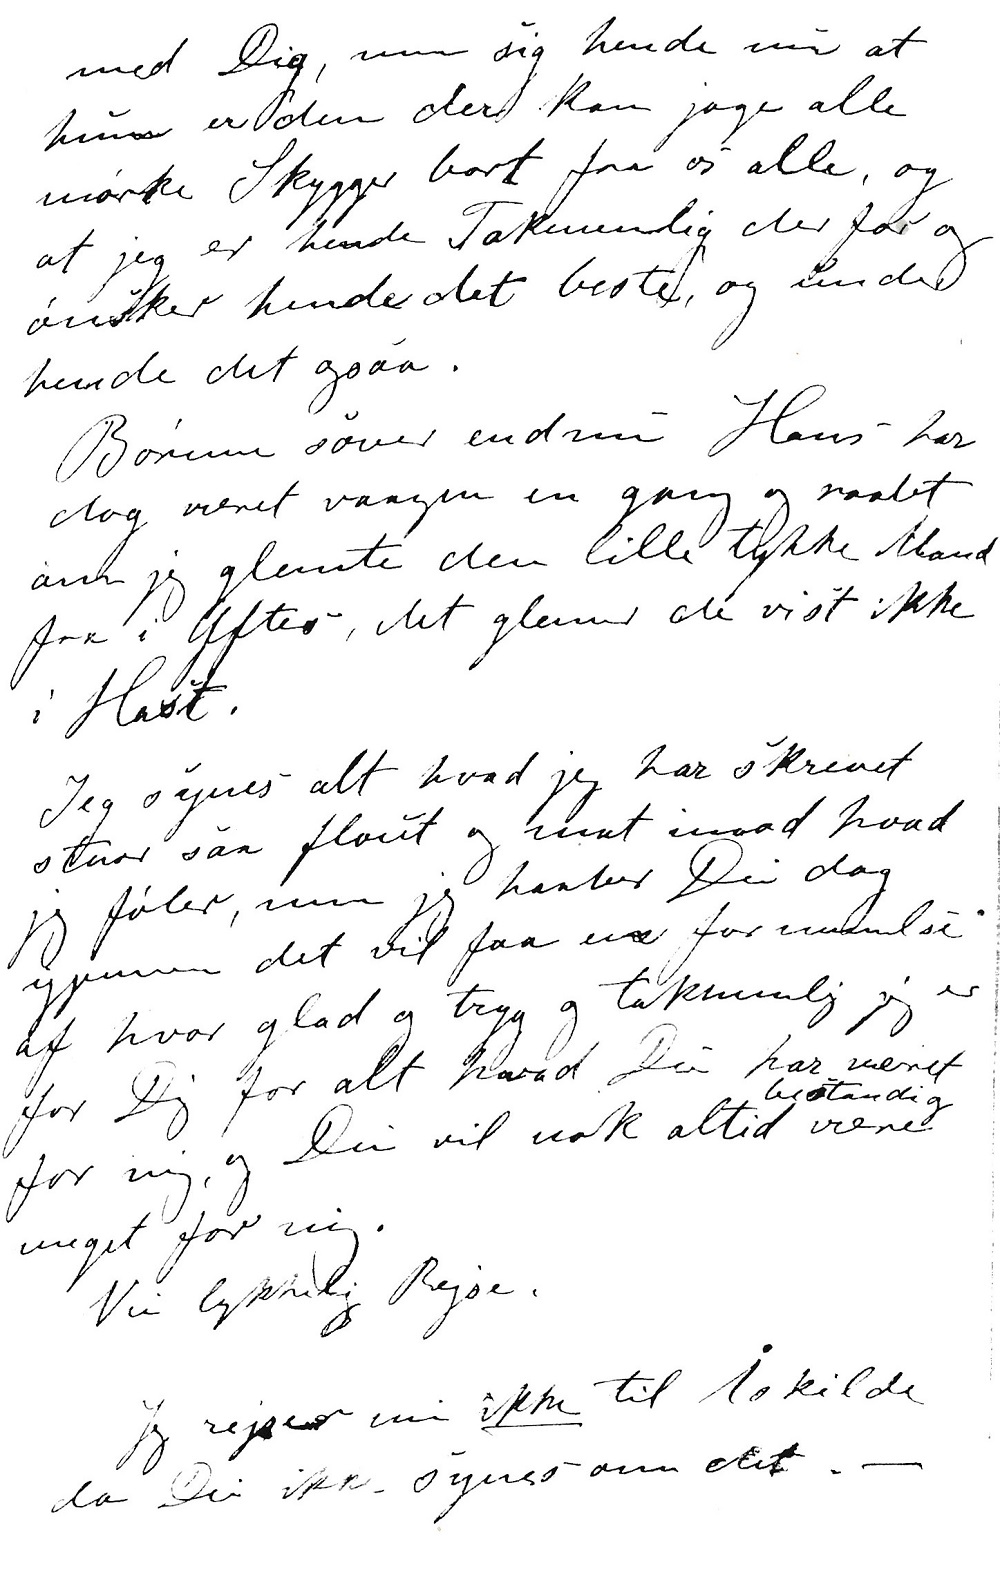 med Dig, men sig hende nu at
hun er den der kan jage alle
mørke Skygger bort fra os alle, og
at jeg er hende Taknemlig der for og
ønsker hende det beste, og under
hende det ogsaa.
Børnene sover endnu Hans har
dog været vaagen en gang og raabt
om jeg glemte den lille tykke Mand
fra i Aftes, det glemmer de vist ikke
i Hast.
Jeg synes alt hvad jeg har skrevet
staar saa flout og mat imod hvad
jeg føler, men jeg haaber Du dog
igjennem det vil faa en fornemmelse
af hvor glad og tryg og taknemlig jeg er
for Dig for alt hvad Du har været
bestandig
for mig, og Du vil nok altid være
meget for mig.
Nu lykkelig Rejse.
Jeg rejser nu ikke til Roskilde
da Du ikke synes om det. —